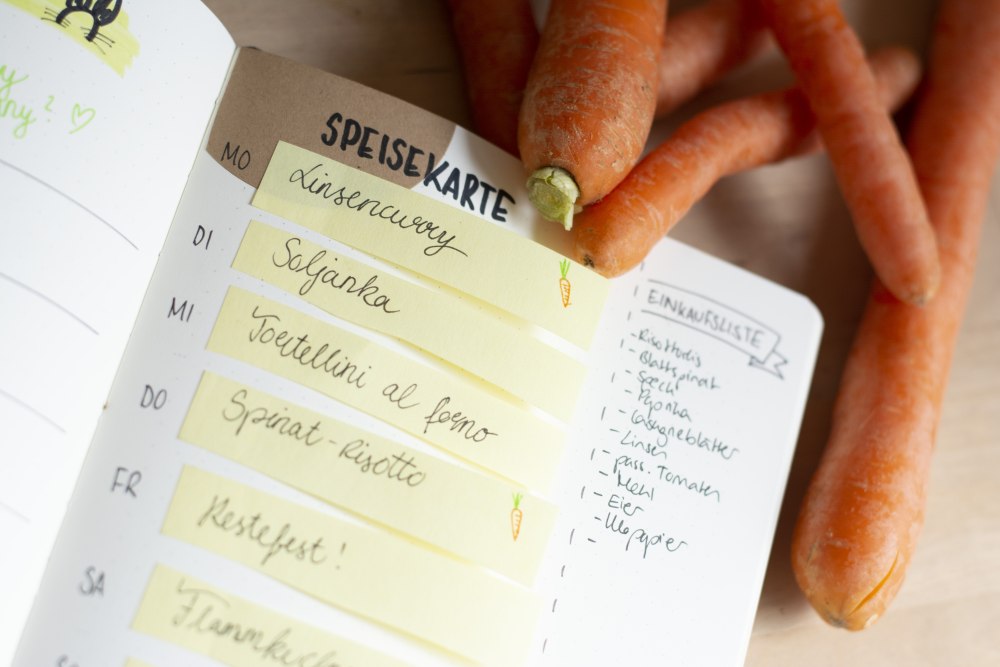 ny?
SPEISEKARTE
MO
Linsencurry
DI
Soljanka
MI
Tortellini al forno
DO
Spinat-Risotto
FR
Restefest!
SA
Flammkuchen
EINKAUFSLISTE
-Risottoreis
-Blattspinat
-Speck
-Paprika
-Lasagneblätter
-Linsen
-pass. Tomaten
-Mehl
-Eier
-Klopapier
-